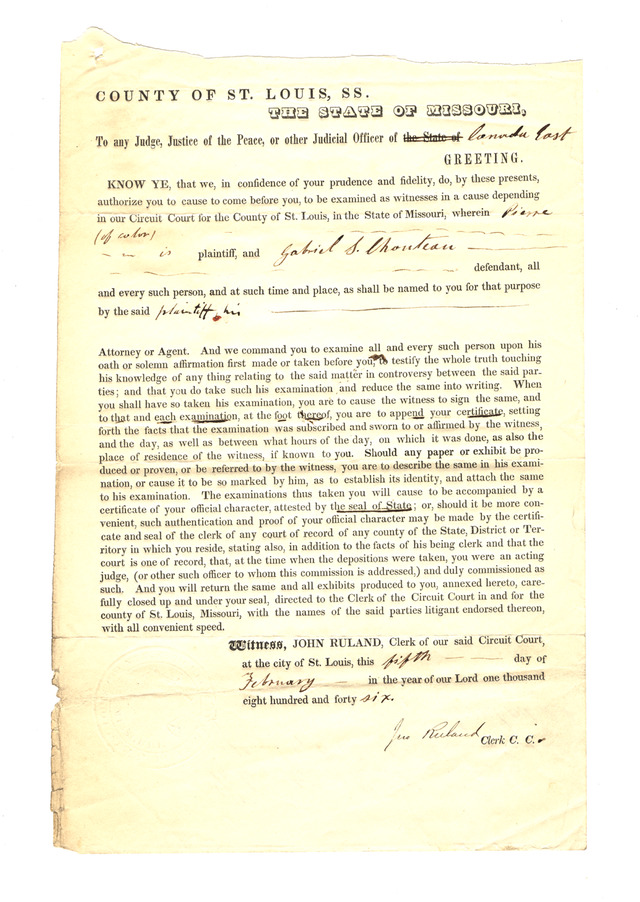 COUNTY OF ST. LOUIS, SS.
THE STATE OF MISSOURI,
To any Judge, Justice of the Peace, or other Judicial Officer of the State of Canada East
GREETING.
KNOW YE, that we, in confidence of your prudence and fidelity, do, by these presents,
authorize you to cause to come before you, to be examined as witnesses in a cause depending
in our Circuit Court for the County of St. Louis, in the State of Missouri, wherein Pierre
(of color)
is plaintiff, and Gabriel S. Chouteau
defendant, all
and every such person, and at such time and place, as shall be named to you for that purpose
by the said plaintiff, his
Attorney or Agent. And we command you to examine all and every such person upon his
oath or solemn affirmation first made or taken before you, to testify the whole truth touching
his knowledge of any thing relating to the said matter in controversy between the said par-
ties; and that you do take such his examination and reduce the same into writing. When
you shall have so taken his examination, you are to cause the witness to sign the same, and
to that and each examination, at the foot thereof, you are to append your certificate, setting
forth the facts that the examination was subscribed and sworn to or affirmed by the witness,
and the day, as well as between what hours of the day, on which it was done, as also the
place of residence of the witness, if known to you. Should any paper or exhibit be pro-
duced or proven, or be referred to by the witness, you are to describe the same in his exami-
nation, or cause it to be so marked by him, as to establish its identity, and attach the same
to his examination. The examinations thus taken you will cause to be accompanied by a
certificate of your official character, attested by the seal of State; or, should it be more con-
venient, such authentication and proof of your official character may be made by the certifi-
cate and seal of the clerk of any court of record of any county of the State, District or Ter-
ritory in which you reside, stating also, in addition to the facts of his being clerk and that the
court is one of record, that, at the time when the depositions were taken, you were an acting
judge, (or other such officer to whom this commission is addressed,) and duly commissioned as
such. And you will return the same and all exhibits produced to you, annexed hereto, care-
fully closed up and under your seal, directed to the Clerk of the Circuit Court in and for the
county of St. Louis, Missouri, with the names of the said parties litigant endorsed thereon,
with all convenient speed.
Witness, JOHN RULAND, Clerk of our said Circuit Court,
at the city of St. Louis, this fifth day of
February in the year of our Lord one thousand
eight hundred and forty six.
Jno Ruland Clerk C. C.